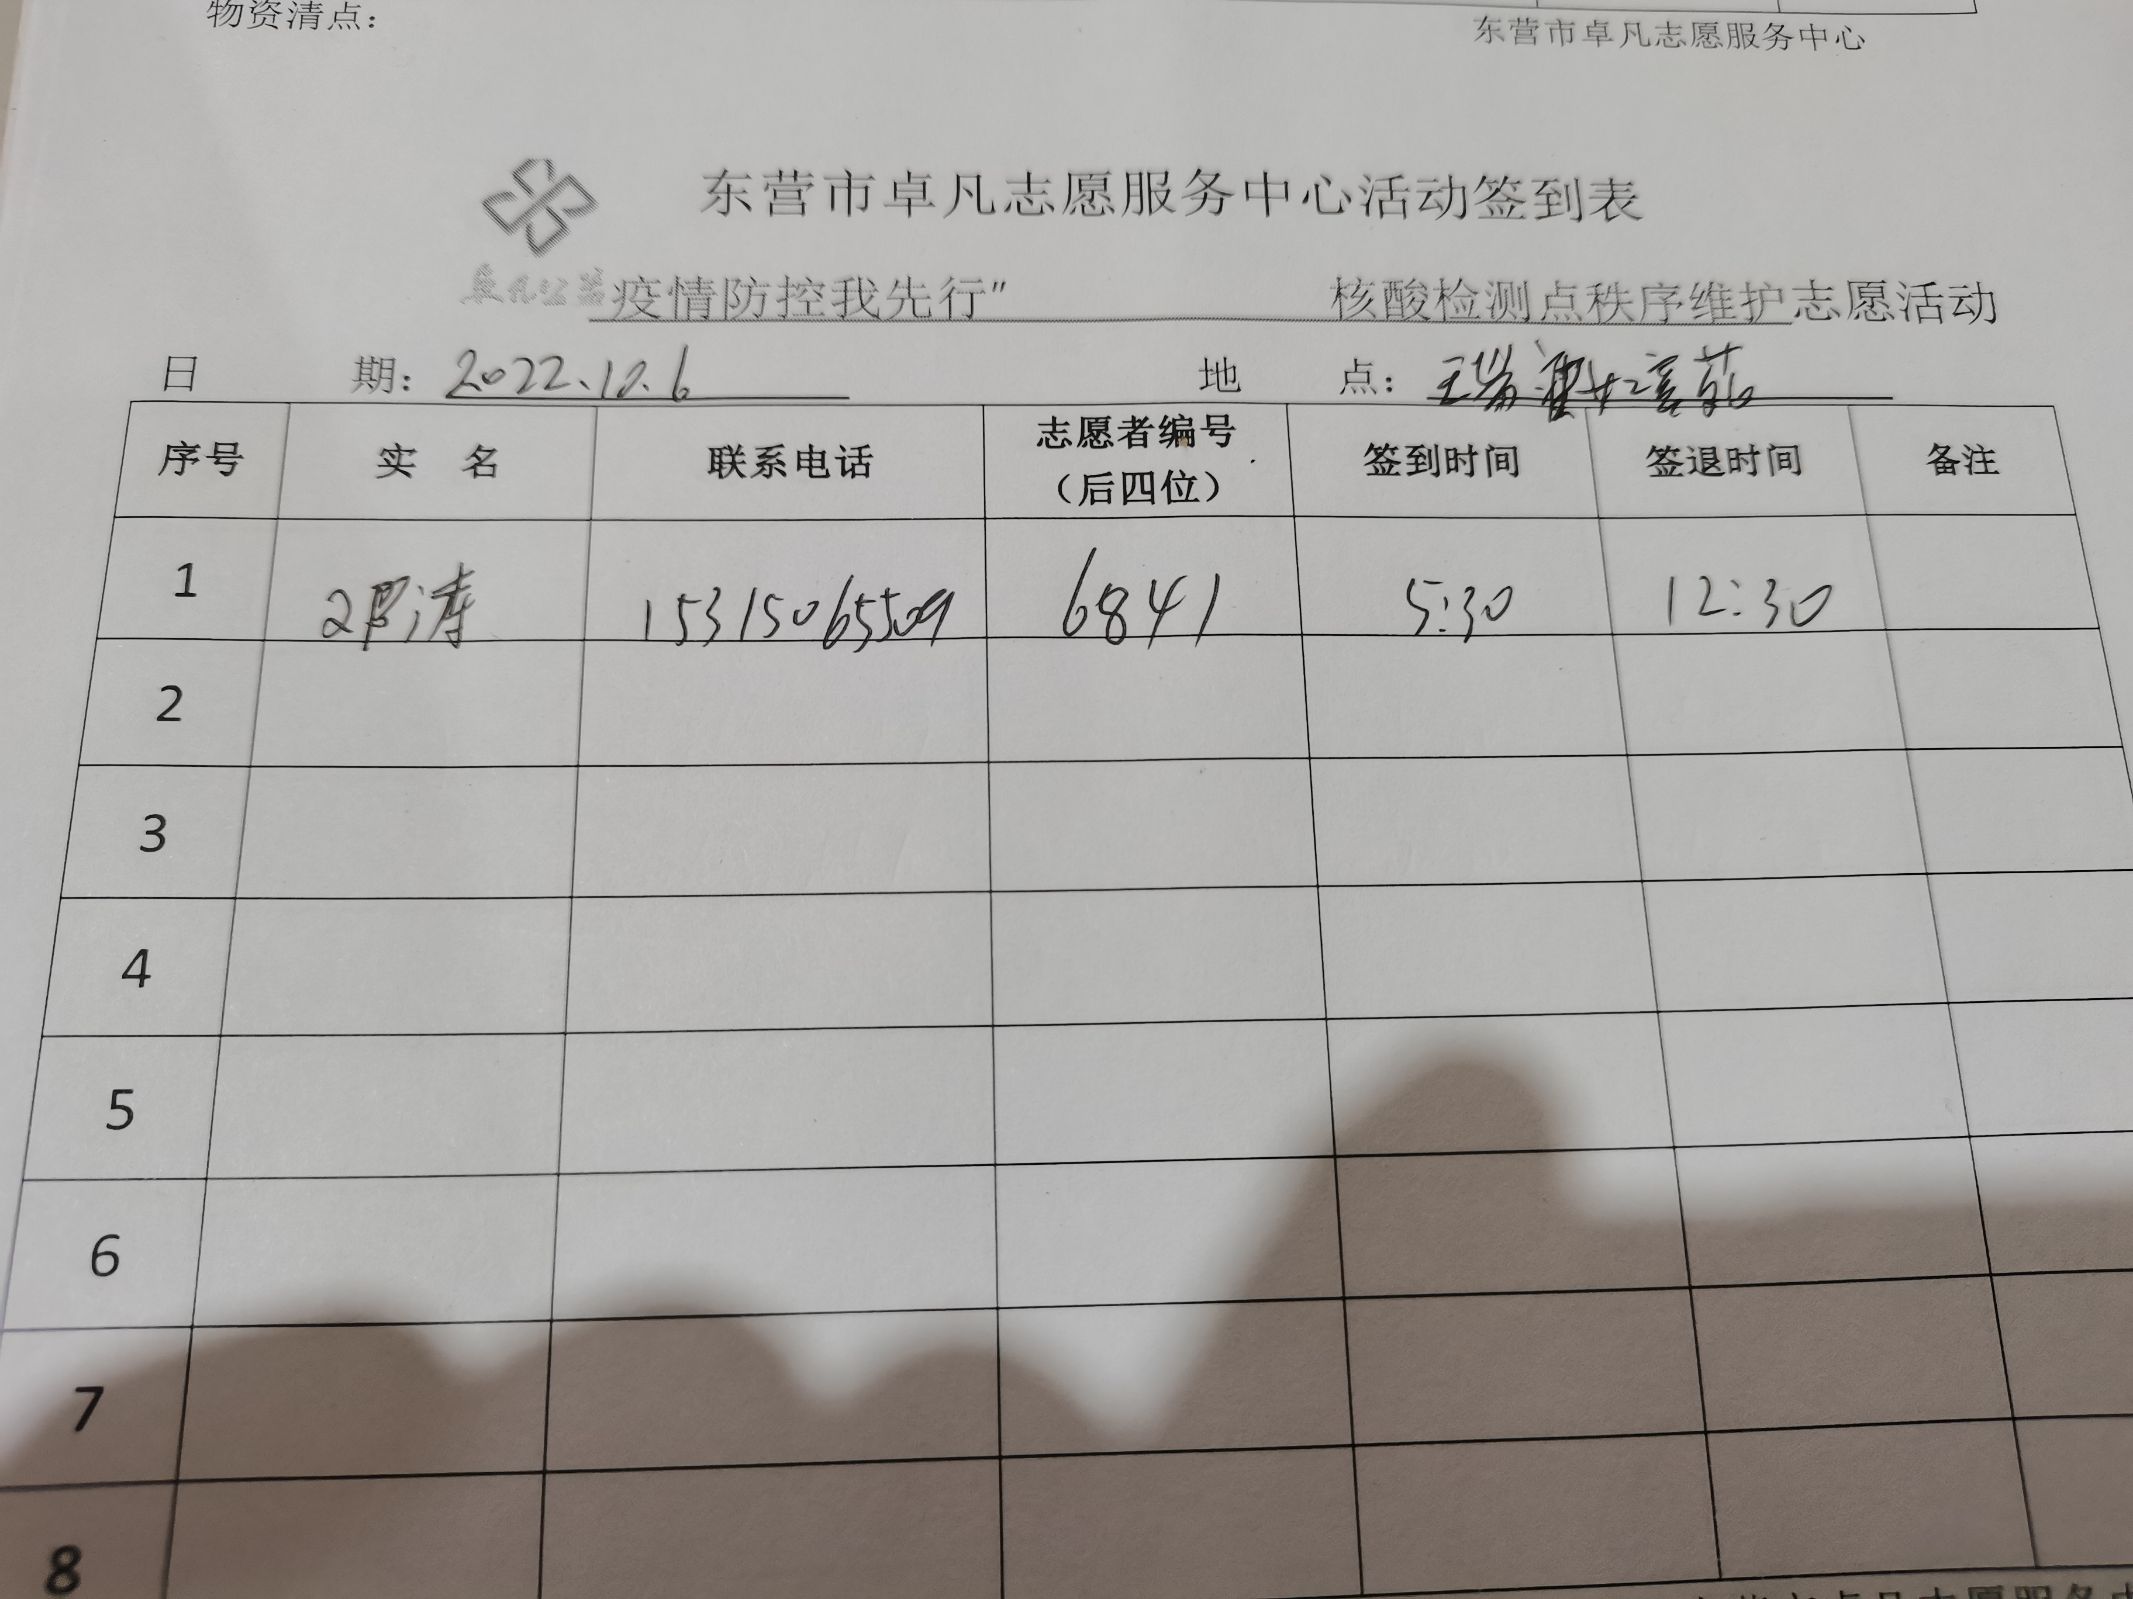 物资清点：
东营市卓凡志愿服务中心
东营市卓凡志愿服务中心活动签到表
卓凡公益
疫情防控我先行” 核酸检测点秩序维护志愿活动
日 期：2022.10.6 地 点：
序号 实 名 联系电话 志愿者编号（后四位） 签到时间 签退时间 备注
1 涛 15315065509 6841 5:30 12:30
2
3
4
5
6
7
8